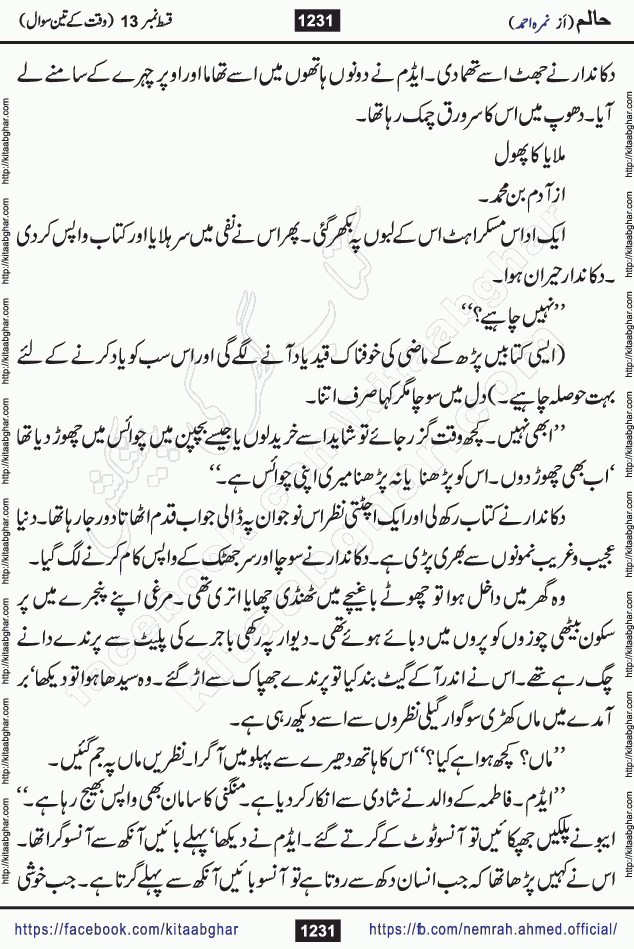 حالم (از نمرہ احمد) 1231 قسط نمبر 13 (وقت کے تین سوال)
دکاندار نے جھٹ اسے تھما دی۔ ایڈم نے دونوں ہاتھوں میں اسے تھاما اور اوپر چہرے کے سامنے لے
آیا۔ دھوپ میں اس کا سرورق چمک رہا تھا۔
ملایا کا پھول
از آدم بن محمد۔
ایک اداس مسکراہٹ اس کے لبوں پہ بکھر گئی۔ پھر اس نے نفی میں سر ہلایا اور کتاب واپس کر دی
۔ دکاندار حیران ہوا۔
’’نہیں چاہیے؟‘‘
(ایسی کتابیں پڑھ کے ماضی کی خوفناک قید یاد آنے لگے گی اور اس سب کو یاد کرنے کے لئے
بہت حوصلہ چاہیے۔) دل میں سوچا مگر کہا صرف اتنا۔
’’ابھی نہیں۔ کچھ وقت گزر جائے تو شاید اسے خرید لوں یا جیسے بچپن میں چوائس میں چھوڑ دیا تھا
‘اب بھی چھوڑ دوں۔ اس کو پڑھنا یا نہ پڑھنا میری اپنی چوائس ہے۔‘‘
دکاندار نے کتاب رکھ لی اور ایک اچٹتی نظر اس نوجوان پہ ڈالی جو اب قدم اٹھاتا دور جا رہا تھا۔ دنیا
عجیب و غریب نمونوں سے بھری پڑی ہے۔ دکاندار نے سوچا اور سر جھٹک کے واپس کام کرنے لگ گیا۔
وہ گھر میں داخل ہوا تو چھوٹے باغیچے میں ٹھنڈی چھایا اتری تھی۔ مرغی اپنے پنجرے میں پر
سکون بیٹھی چوزوں کو پروں میں دبائے ہوئے تھی۔ دیوار پہ رکھی باجرے کی پلیٹ سے پرندے دانے
چگ رہے تھے۔ اس نے اندر آ کے گیٹ بند کیا تو پرندے جھپاک سے اڑ گئے۔ وہ سیدھا ہوا تو دیکھا‘ بر
آمدے میں ماں کھڑی سوگوار گیلی نظروں سے اسے دیکھ رہی ہے۔
’’ماں؟ کچھ ہوا ہے کیا؟‘‘ اس کا ہاتھ دھیرے سے پہلو میں آ گرا۔ نظریں ماں پہ جم گئیں۔
’’ایڈم۔ فاطمہ کے والد نے شادی سے انکار کر دیا ہے۔ منگنی کا سامان بھی واپس بھیج رہا ہے۔‘‘
ایبو نے پلکیں جھپکائیں تو آنسو ٹوٹ کے گرتے گئے۔ ایڈم نے دیکھا‘ پہلے بائیں آنکھ سے آنسو گرا تھا۔
اس نے کہیں پڑھا تھا کہ جب انسان دکھ سے روتا ہے تو آنسو بائیں آنکھ سے پہلے گرتا ہے۔ جب خوشی
https://facebook.com/kitaabghar 1231 https://fb.com/nemrah.ahmed.official/
http://kitaabghar.com http://kitaabghar.com http://kitaabghar.com http://kitaabghar.com http://kitaabghar.com http://kitaabghar.com http://kitaabghar.com http://kitaabghar.com
http://kitaabghar.com http://kitaabghar.com http://kitaabghar.com http://kitaabghar.com http://kitaabghar.com http://kitaabghar.com http://kitaabghar.com http://kitaabghar.com